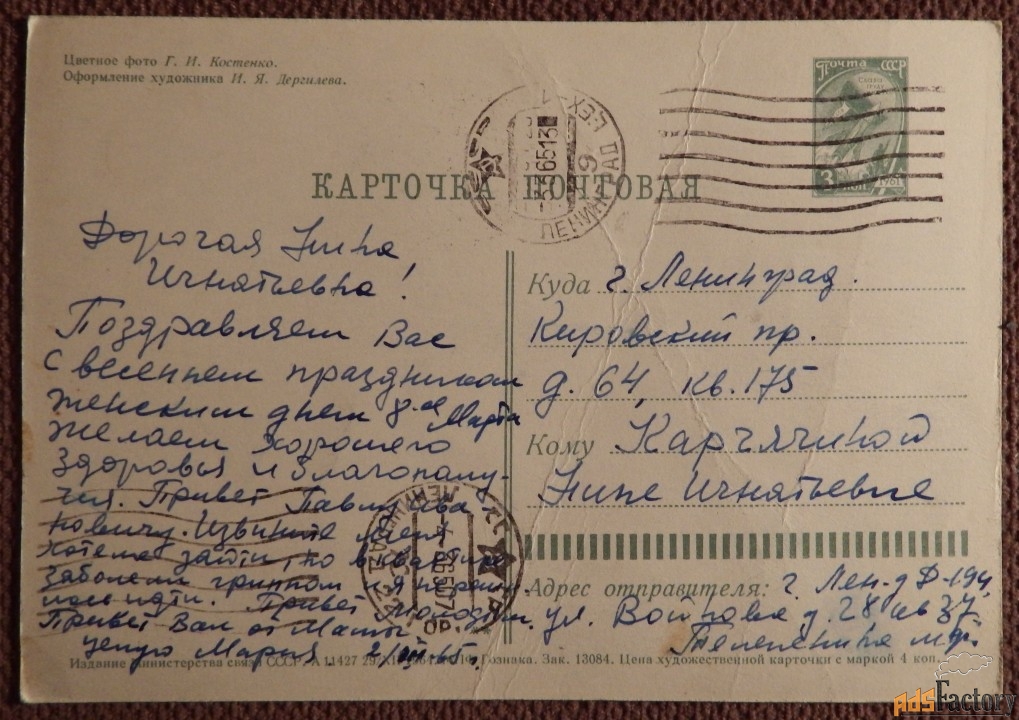 Цветное фото Г. И. Костенко.
Оформление художника И. Я. Дергилева.
Почта СССР
3 коп
1961
КАРТОЧКА ПОЧТОВАЯ
ЛЕНИНГРАД
Дорогая Нина
Игнатьевна!
Поздравляем Вас
с весенним праздником
женским днем 8ое Марта
Желаем хорошего
здоровья и благополу-
чия. Привет Павлу Ива
новичу. Извините меня
хотела зайти, но в квартире
заболели гриппом и я
идти. Привет
Привет Вам от
целую Мария 2/III 65г.
Куда г. Ленинград.
Кировский пр.
д. 64, кв. 175
Кому
Нине Игнатьевне
Адрес отправителя: г. Лен-д Д-194
ул. Войнова д. 28 кв 37
Издание Министерства связи СССР. А 11427 Гознака. Зак. 13084. Цена художественной карточки с маркой 4 коп.
AdsFactory